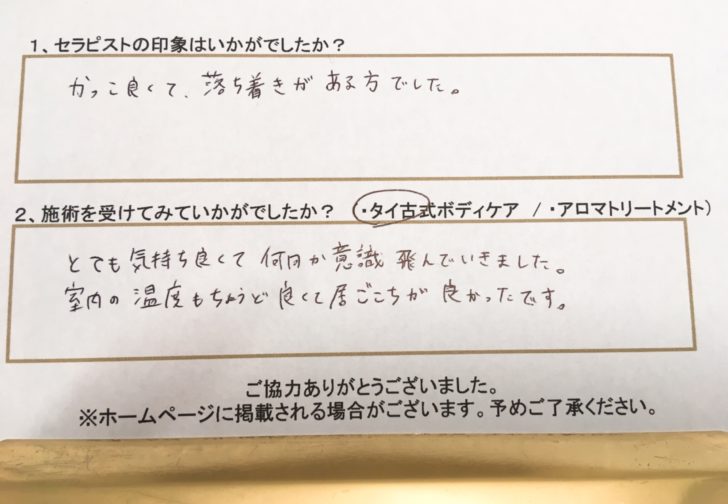 1、セラピストの印象はいかがでしたか？
かっこ良くて、落ち着きがある方でした。
2、施術を受けてみていかがでしたか？ （・タイ古式ボディケア / ・アロマトリートメント）
とても気持ち良くて何回か意識飛んでいきました。
室内の温度もちょうど良くて居ごこちが良かったです。
ご協力ありがとうございました。
※ホームページに掲載される場合がございます。予めご了承ください。